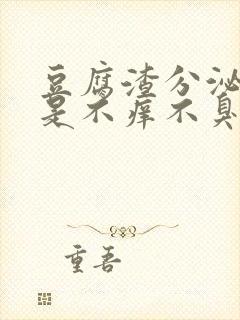 豆腐渣分泌
是不痒不臭
重吾